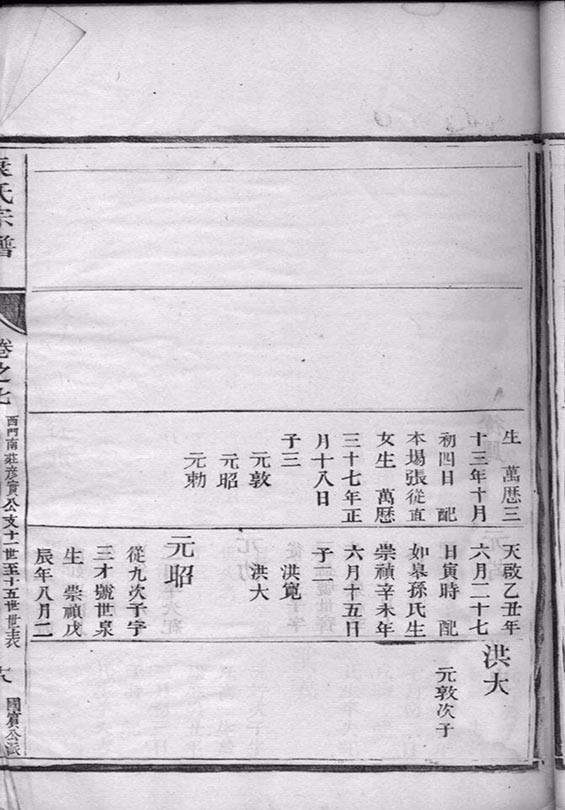 生 萬厯三
十三年十月
初四日 配
本場張從直
女生 萬厯
三十七年正
月十八日
子三
元敦
元昭
元勅
天啟乙丑年
六月二十七
日寅時 配
如皋孫氏生
崇禎辛未年
六月十五日
子二
洪寬
洪大
元昭
從九次子字
三才號世泉
生 崇禎戊
辰年八月二
洪大
元敦次子
氏宗譜
卷之七
西門南莊彥實公支十一世至十五世世表
國賓公派